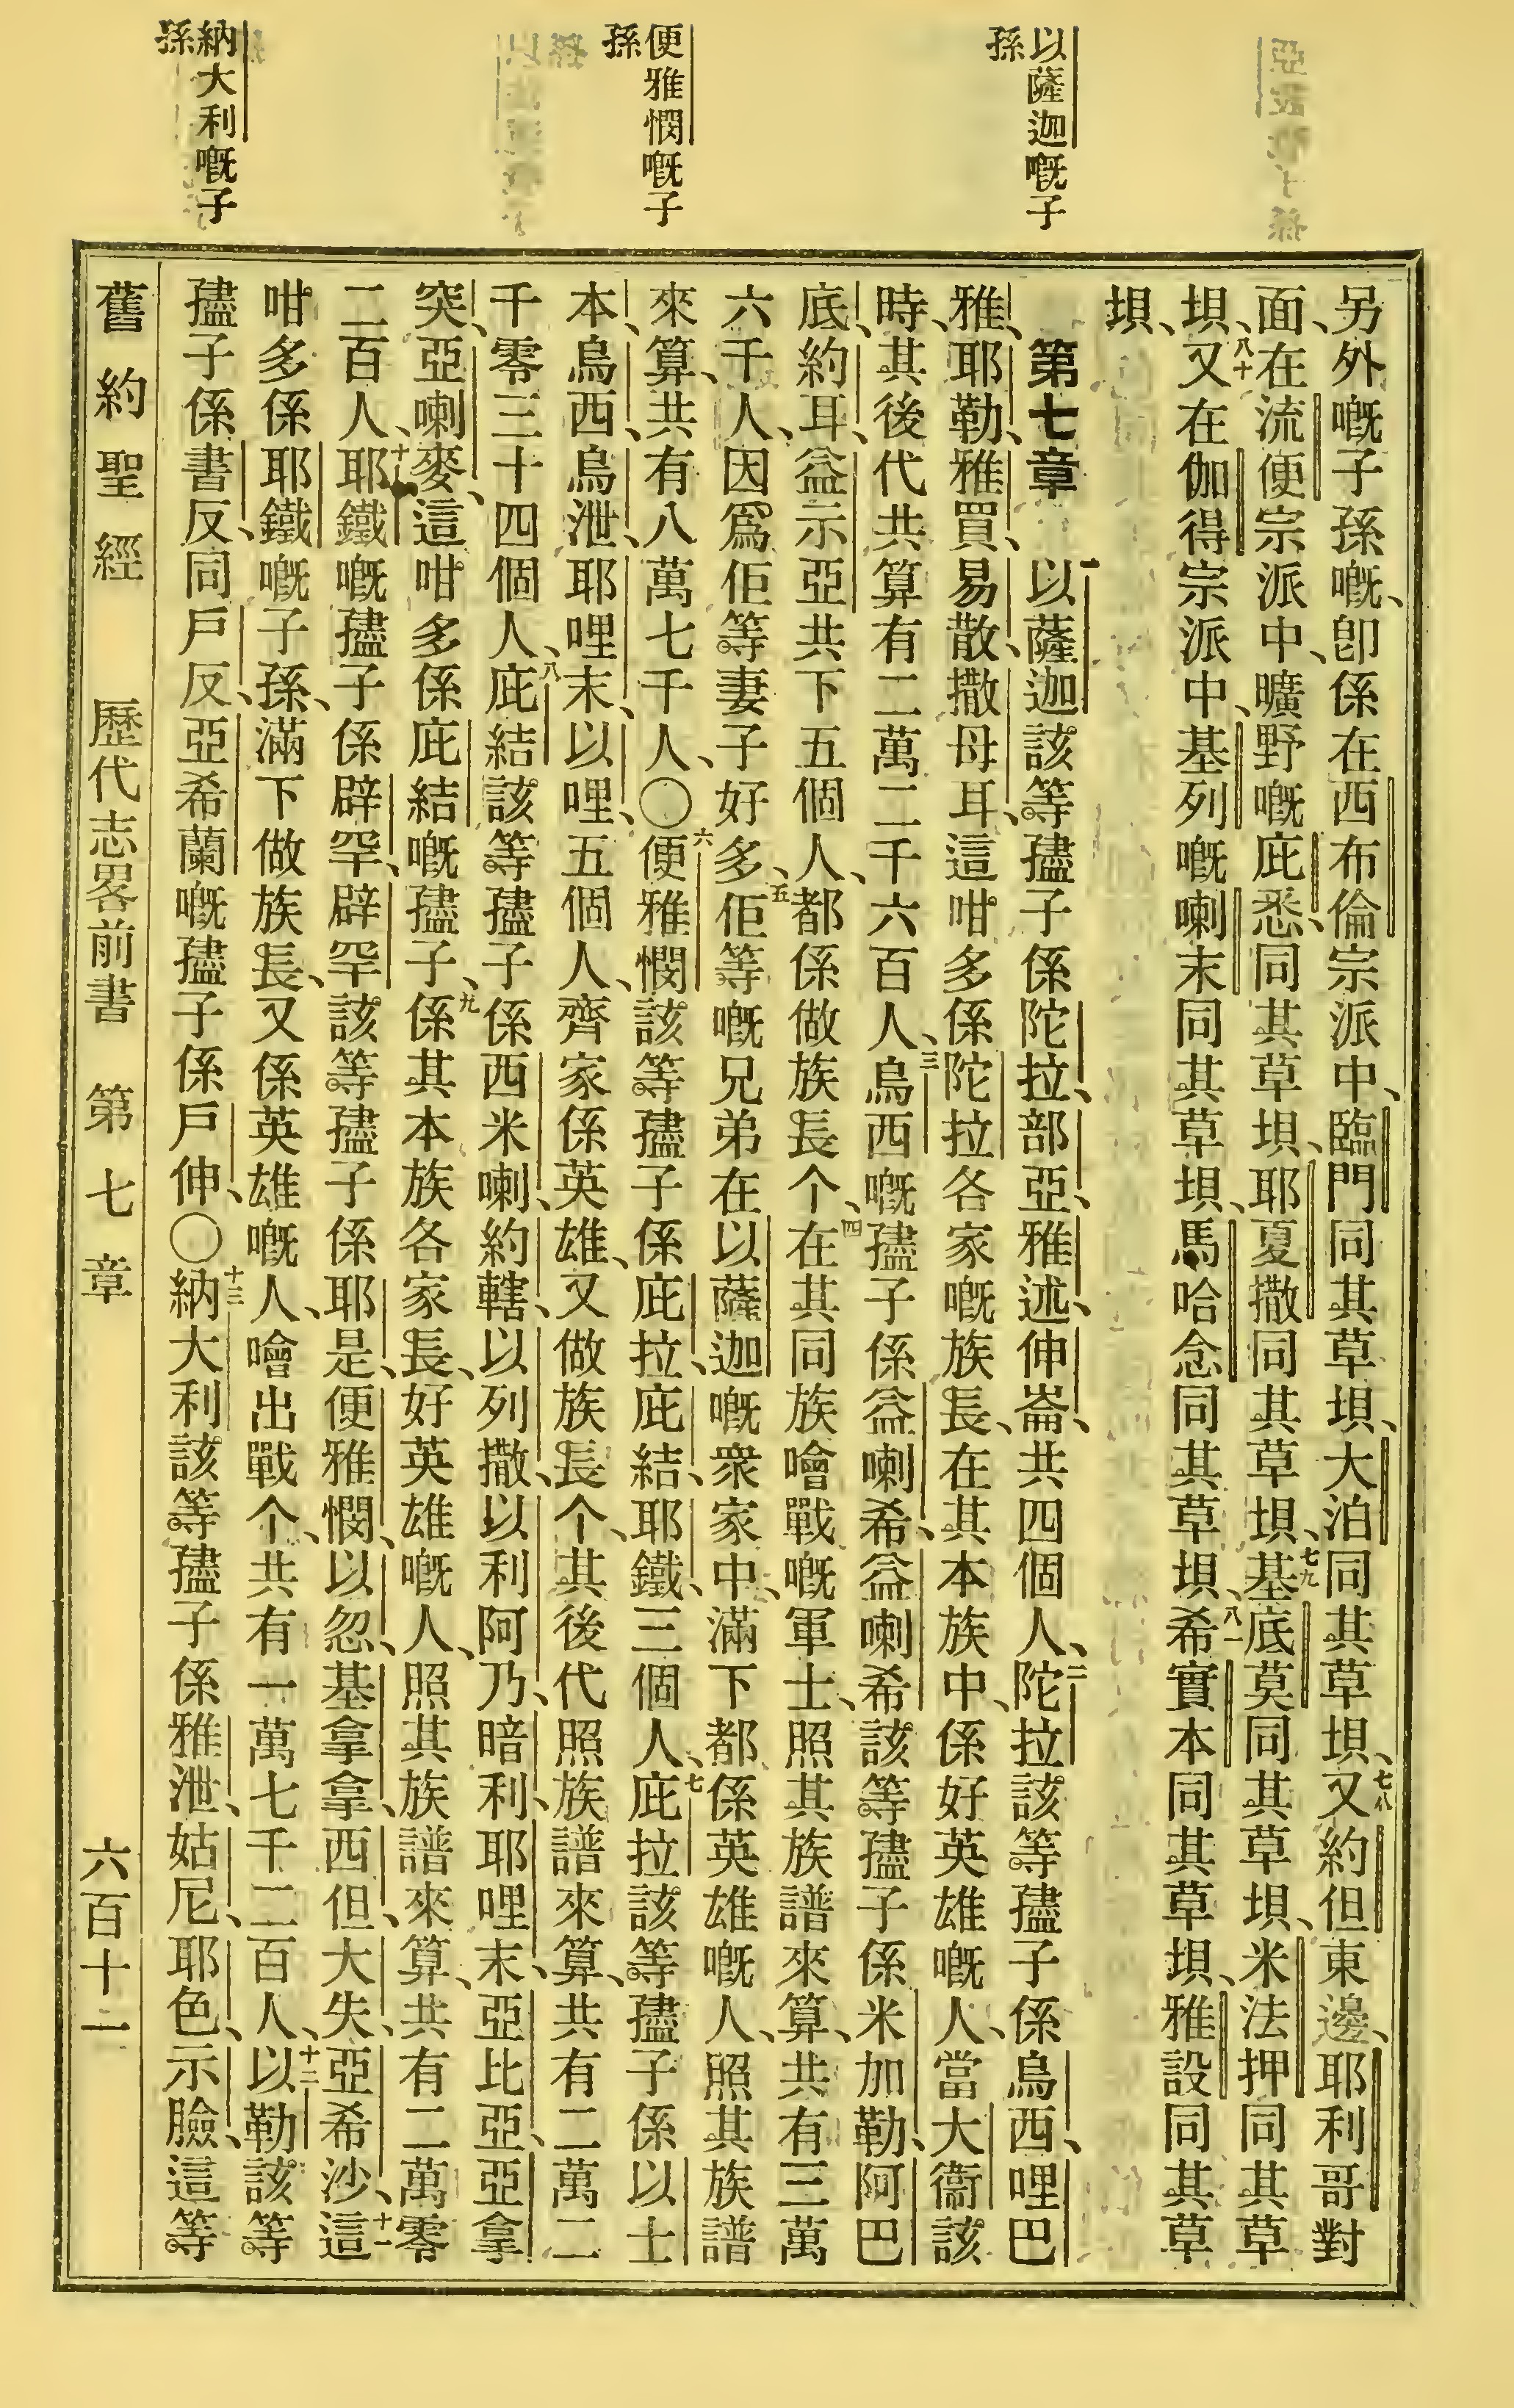 以薩迦嘅子
孫
便雅憫嘅子
孫
納大利嘅子
孫
另外嘅子孫嘅、卽係在西布倫宗派中、臨門同其草垻、大泊同其草垻、七八又約但東邊、耶利哥對
面、在流便宗派中、曠野嘅庇悉、同其草垻、耶夏撒同其草垻、七九基底莫同其草垻、米法押同其草
垻、八十又在伽得宗派中、基列嘅喇末同其草垻、馬哈念同其草垻、八一希實本同其草垻、雅設同其草
垻、
第七章　一以薩迦該等孻子係陀拉、部亞、雅述、伸崙、共四個人、二陀拉該等孻子係烏西、哩巴
雅、耶勒、雅買、易散、撒母耳、這咁多係陀拉各家嘅族長、在其本族中、係好英雄嘅人、當大衞該
時、其後代共算有二萬二千六百人、三烏西嘅孻子係益喇希、益喇希該等孻子係米加勒、阿巴
底、約耳、益示亞、共下五個人、都係做族長个、四在其同族噲戰嘅軍士、照其族譜來算、共有三萬
六千人、因爲佢等妻子好多、五佢等嘅兄弟在以薩迦嘅衆家中、滿下都係英雄嘅人、照其族譜
來算、共有八萬七千人、〇六便雅憫該等孻子係庇拉、庇結、耶鐵、三個人、七庇拉該等孻子係以士
本、烏西、烏泄、耶哩末、以哩、五個人、齊家係英雄、又做族長个、其後代照族譜來算、共有二萬二
千零三十四個人、八庇結該等孻子係西米喇、約轄、以列撒、以利阿乃、暗利、耶哩末、亞比亞、亞拿
突、亞喇麥、這咁多係庇結嘅孻子、九係其本族各家長、好英雄嘅人、照其族譜來算、共有二萬零
二百人、十耶鐵嘅孻子係辟罕、辟罕該等孻子係耶是、便雅憫、以忽、基拿拿、西但、大失、亞希沙、十一這
咁多係耶鐵嘅子孫、滿下做族長、又係英雄嘅人、噲出戰个、共有一萬七千二百人、十二以勒該等
孻子係書反、同戶反、亞希蘭嘅孻子係戶伸、〇十三納大利該等孻子係雅泄、姑尼、耶色、示臉、這等
舊約聖經　歷代志畧前書　第七章　六百十二